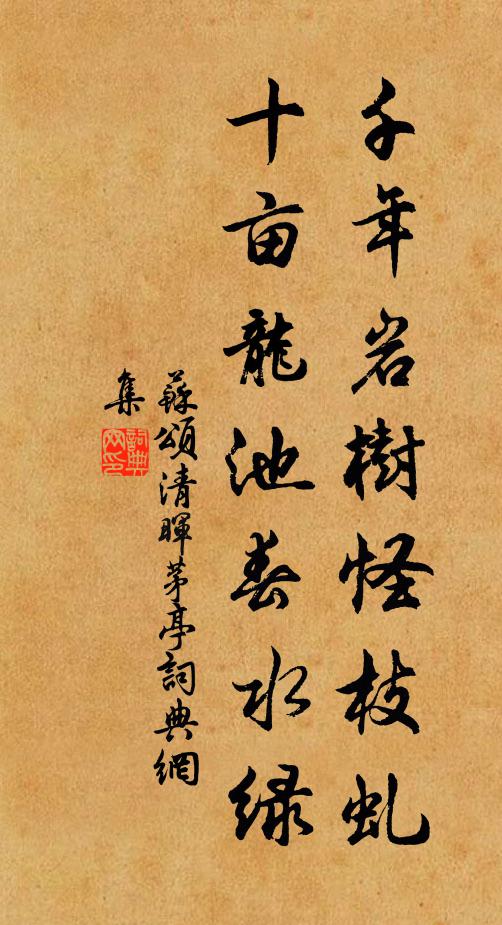 千年岩樹怪枝虬
十亩龍池春水绿
蘇頌清暉茅亭詞典網
集
詞典
网印